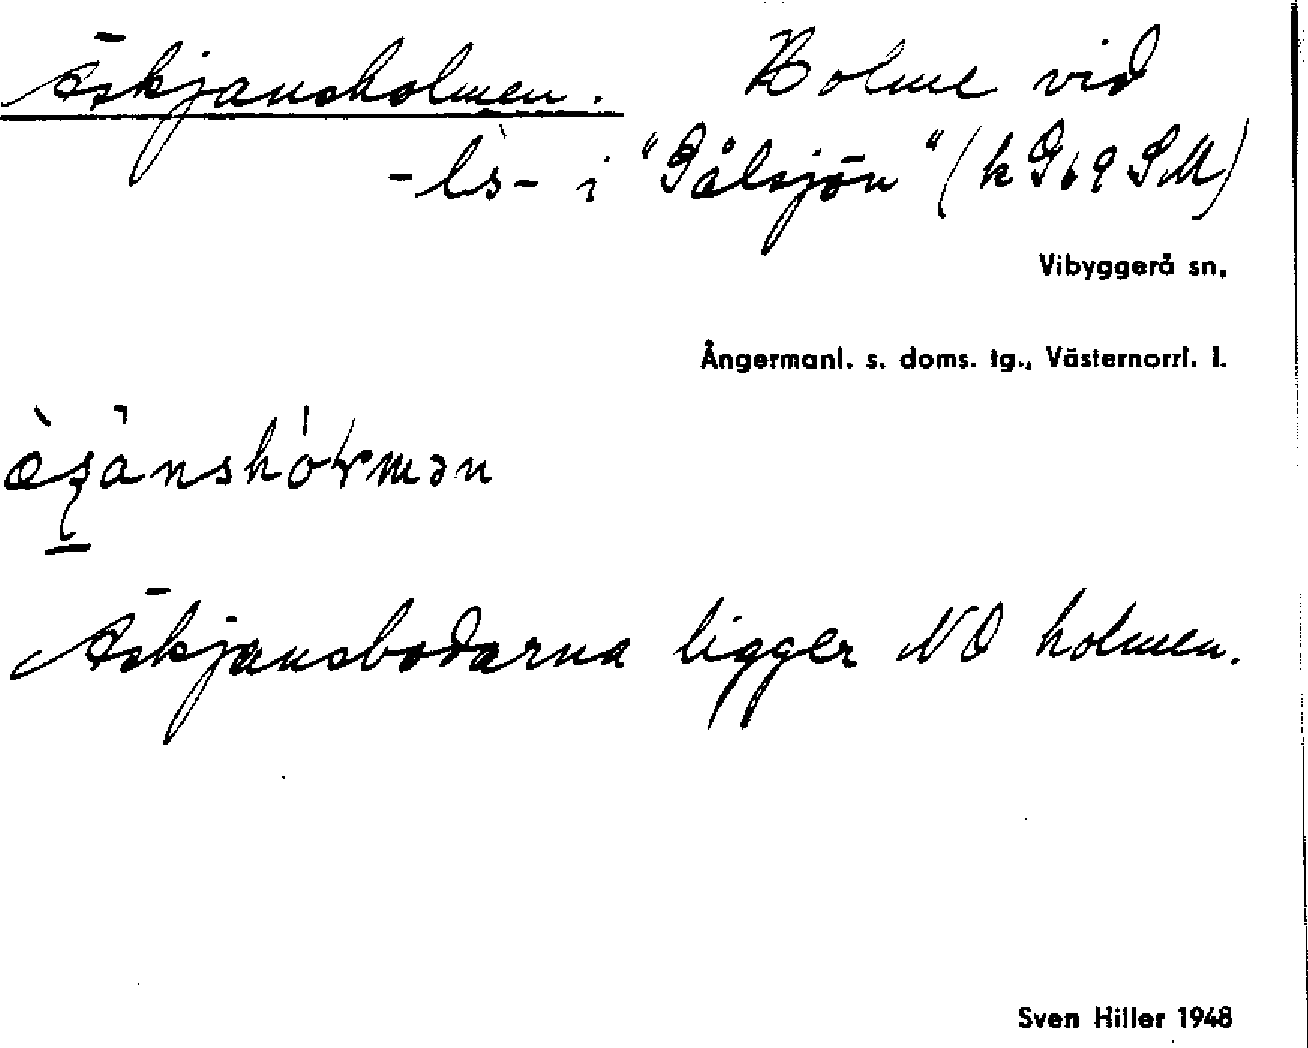 Äskjansholmen. Holme vid
-ls- i "Pålsjön" (k G69 SM)
Vibyggerå sn.
Ångermanl. s. doms. tg., Västernorrl. l.
Äskjansbodarna ligger NO holmen.
Sven Hiller 1948